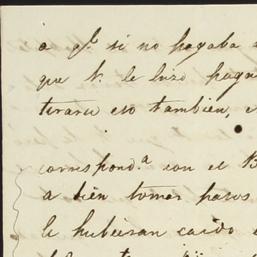 a q.e si no pagaba
que V. le hizo pagar
tirarse eso tambien, e
correspond.a con el B
a bien tomar pasos
le hubieran caido